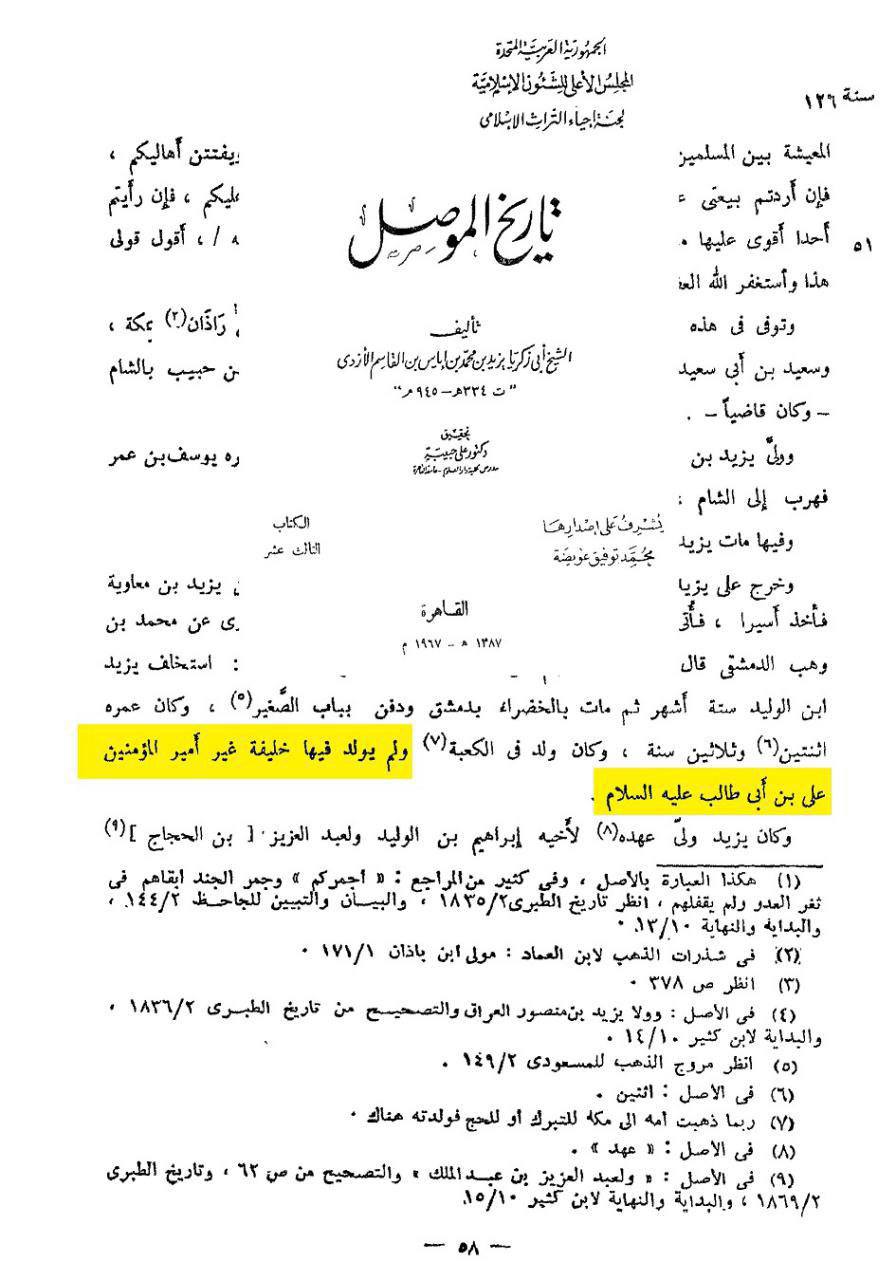 سنة ١٢٦
الجمهورية العربية المتحدة
المجلس الأعلى للشئون الإسلامية
لجنة إحياء التراث الإسلامى
تاريخ الموصل
تأليف
الشيخ أبى زكريا يزيد بن محمد بن إياس بن القاسم الأزدى
"ت ٣٣٤هـ - ٩٤٥م"
تحقيق
دكتور على حبيبة
يشرف على إصدارها
محمد توفيق عويضة
الكتاب
الثالث عشر
القاهرة
١٣٨٧ هـ - ١٩٦٧ م
المعيشة بين المسلمين ويفتتن أهاليكم ،
فإن أردتم بيعتى عليكم ، فإن رأيتم
أحدا أقوى عليها ه / ، أقول قولى
٥١
هذا وأستغفر الله
وتوفى فى هذه راذَان(٢) بمكة ،
وسعيد بن أبى سعيد بن حبيب بالشام
- وكان قاضياً - .
وولىَّ يزيد بن ره يوسف بن عمر
فهرب إلى الشام
وفيها مات يزيد
وخرج على يزيد يزيد بن معاوية
فأخذ أسيرا ، فأتى رى عن محمد بن
وهب الدمشقى قال : استخلف يزيد
ابن الوليد ستة أشهر ثم مات بالخضراء بدمشق ودفن بباب الصَّغير(٥) ، وكان عمره
اثنتين(٦) وثلاثين سنة ، وكان ولد فى الكعبة(٧) ولم يولد فيها خليفة غير أمير المؤمنين
على بن أبى طالب عليه السلام .
وكان يزيد ولىّ عهده(٨) لأخيه إبراهيم بن الوليد ولعبد العزيز [ بن الحجاج ](٩)
(١) هكذا العبارة بالأصل ، وفى كثير من المراجع : « اجمركم » وجمر الجند ابقاهم فى
ثغر العدو ولم يقفلهم ، انظر تاريخ الطبرى ١٨٣٥/٢ ، والبيان والتبيين للجاحظ ١٤٤/٢ ،
والبداية والنهاية ١٣/١٠ .
(٢) فى شذرات الذهب لابن العماد : مولى ابن باذان ١٧١/١ .
(٣) انظر ص ٣٧٨ .
(٤) فى الأصل : وولا يزيد بن منصور العراق والتصحيح من تاريخ الطبرى ١٨٣٦/٢ ،
والبداية لابن كثير ١٤/١٠ .
(٥) انظر مروج الذهب للمسعودى ١٤٩/٢ .
(٦) فى الأصل : اثنين .
(٧) ربما ذهبت أمه الى مكة للتبرك أو للحج فولدته هناك .
(٨) فى الأصل : « عهد » .
(٩) فى الأصل : « ولعبد العزيز بن عبد الملك » والتصحيح من ص ٦٢ ، وتاريخ الطبرى
١٨٦٩/٢ ، والبداية والنهاية لابن كثير ١٥/١٠.
— ٥٨ —